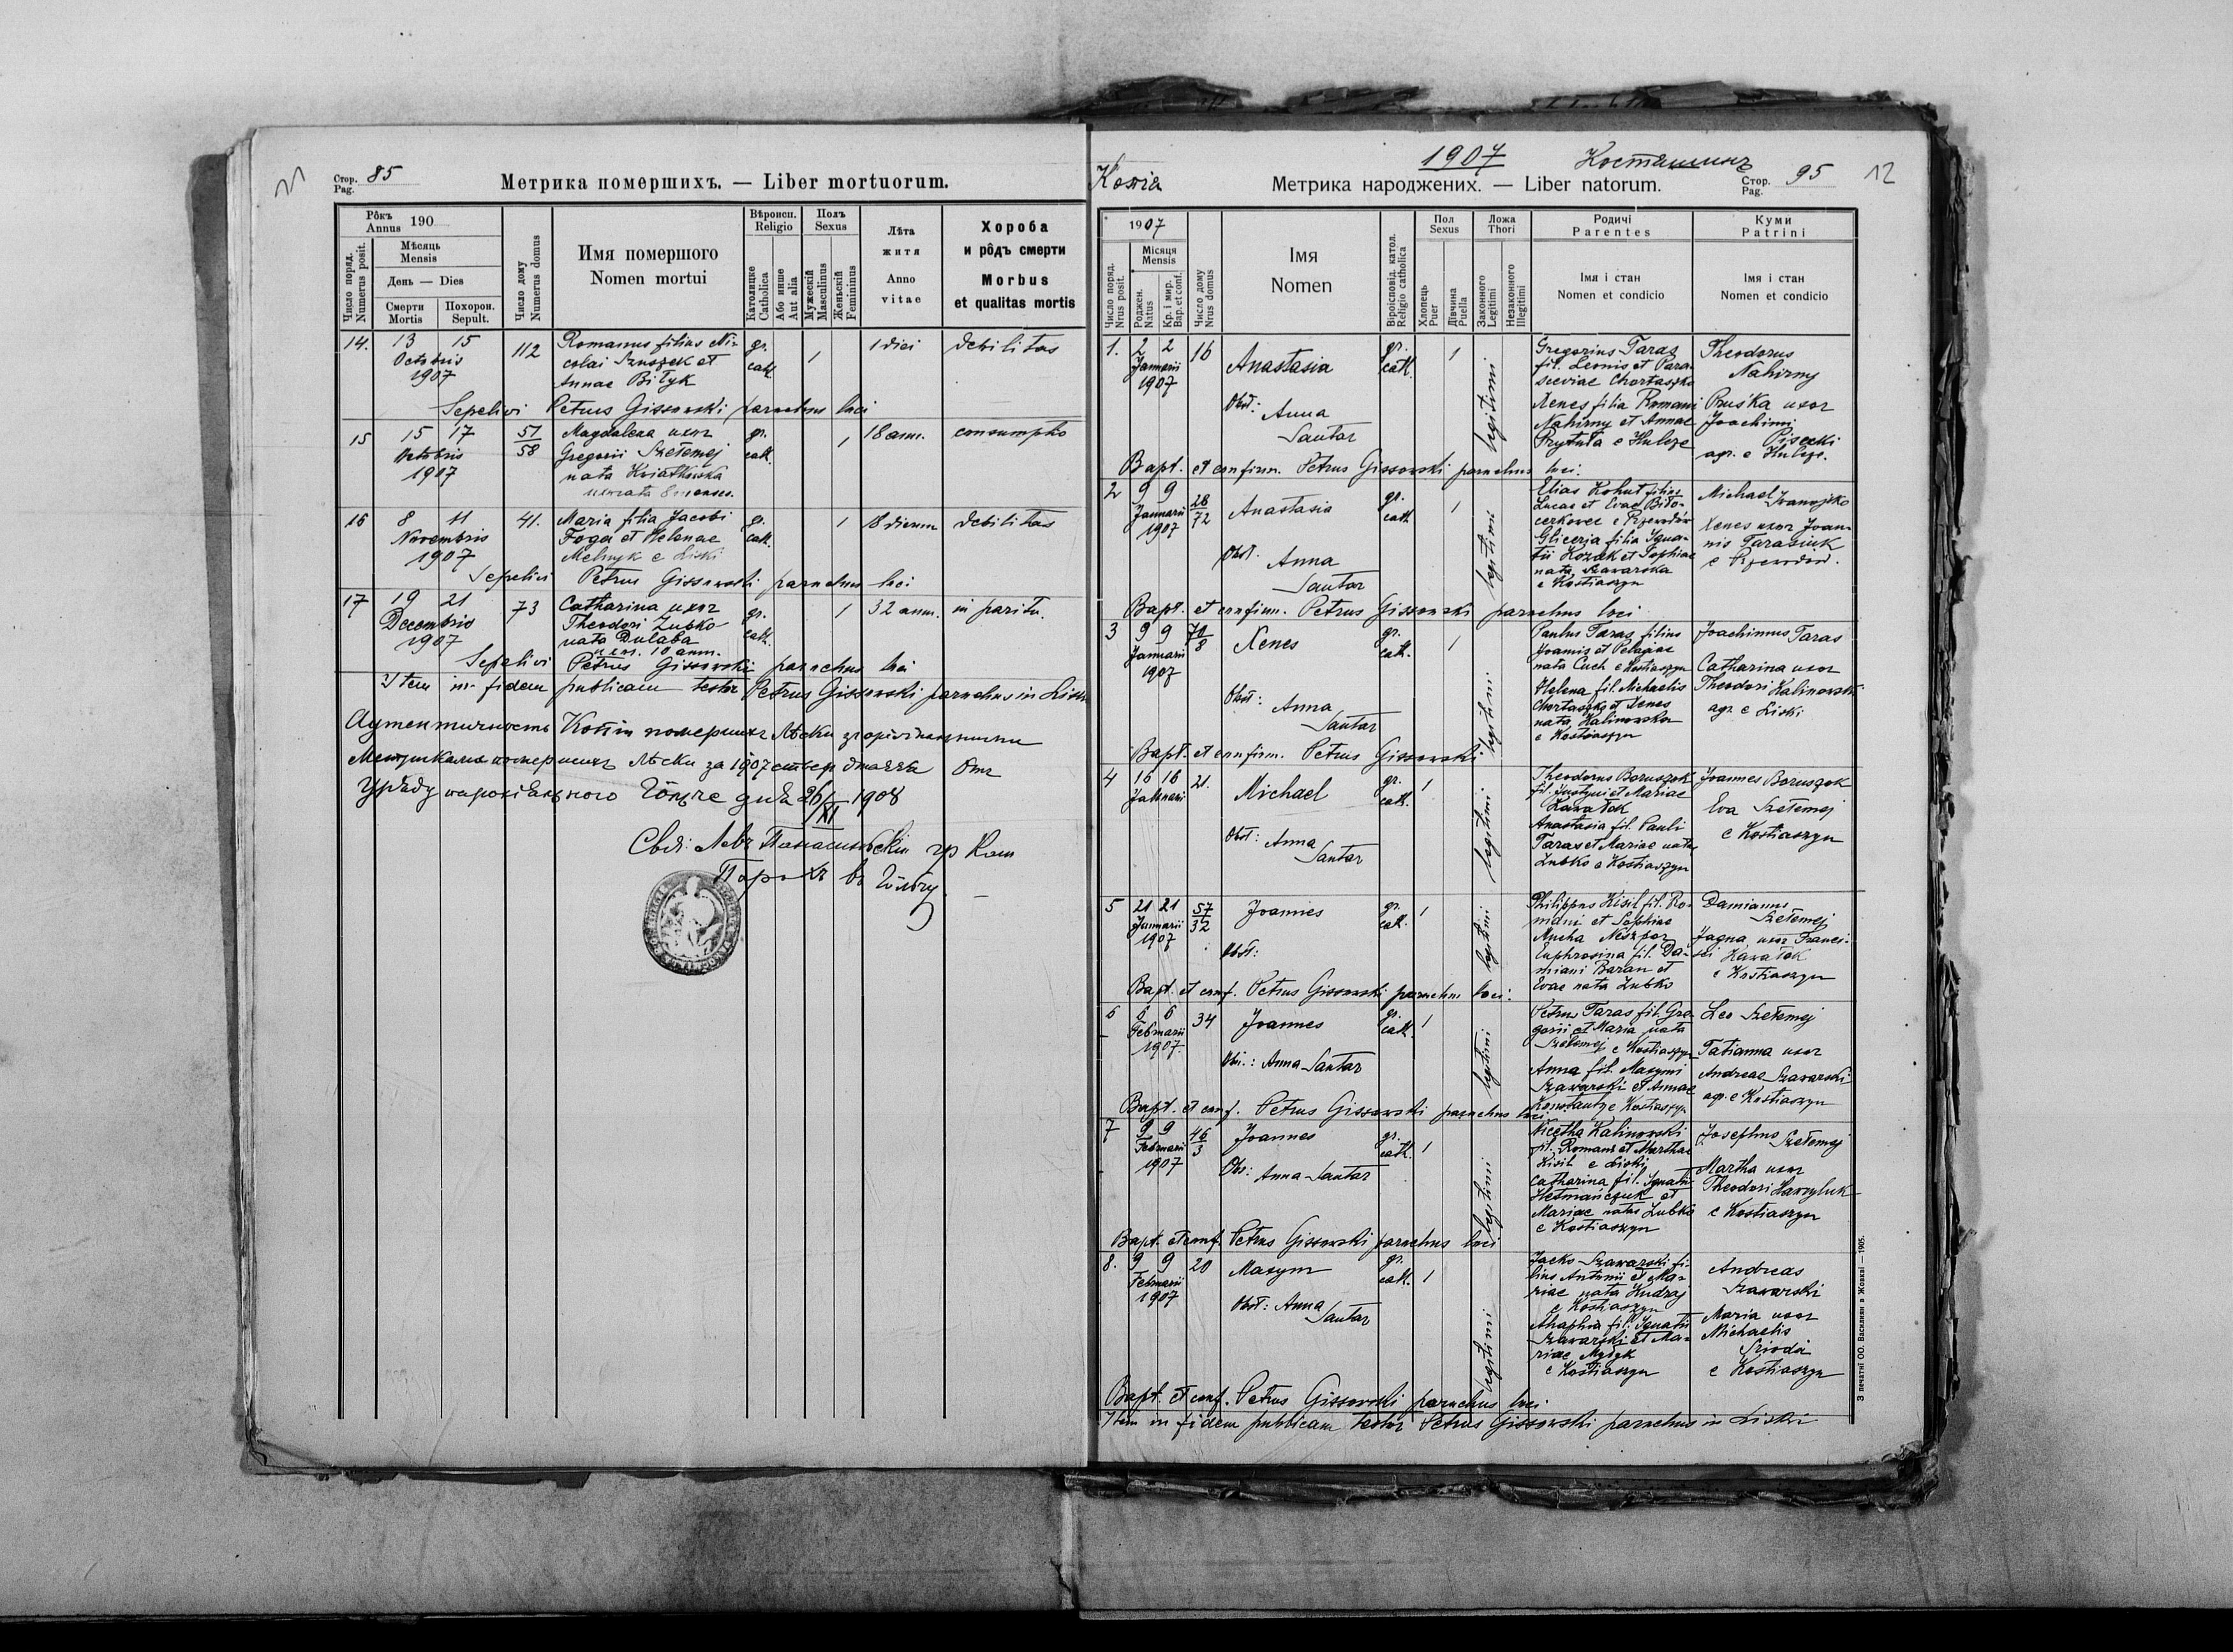 Стор. Pag. 85
Метрика помершихъ. — Liber mortuorum.
Рôкъ Annus 190
Число поряд. Numerus posit.
Мѣсяць Mensis
День — Dies
Смерти Mortis
Похорон. Sepult.
Число дому Numerus domus
Имя помершого
Nomen mortui
Вѣроисп. Religio
Католицке Catholica
Або инше Aut alia
Полъ Sexus
Мужескій Masculinus
Женьскій Femininus
Лѣта житя
Anno vitae
Хороба и рôдъ смерти
Morbus et qualitas mortis
14. 13 15 Octobris 1907 112
Romanus filius Ni-
colai Szuszek et
Annae Biłyk
gr. cath. 1 1 diei debilitas
Sepelivi Petrus Gissowski parochus loci
15 15 17 Octobris 1907 57/58
Magdalena uxor
Gregorii Szełemej
nata Kwiatkowska
uxorata 8 menses.
gr. cath. 1 18 ann. consumptio
16 8 11 Novembris 1907 41.
Maria filia Jacobi
Foga et Helenae
Melnyk e Liski
gr. cath. 1 18 dierum debilitas
Sepelivi Petrus Gissowski parochus loci
17 19 21 Decembris 1907 73
Catharina uxor
Theodori Zubko
nata Dulaba
uxor. 10 ann.
gr. cath. 1 32 ann. in partu.
Sepelivi Petrus Gissowski parochus loci
Item in fidem publicam testor Petrus Gissowski parochus in Liski
Аутентичность Копіи помершихъ Лѣски зъ оріґінальными
Метриками помершихъ Лѣски за 1907 стверджаєся Отъ
Уряду парохіяльного Гôльче дня 26/XI 1908
Левъ гр кат
Парохъ въ
1907 Костяшинъ
Копія
Метрика народжених. — Liber natorum.
Стор. Pag. 95 12
1907
Число поряд. Nrus posit.
Місяця Mensis
Роджен. Natus
Кр. і мир. Bap. et conf.
Число дому Nrus domus
Імя
Nomen
Віроісповід. катол. Religio catholica
Пол Sexus
Хлопець Puer
Дівчина Puella
Ложа Thori
Законного Legitimi
Незаконного Illegitimi
Родичі Parentes
Імя і стан Nomen et condicio
Куми Patrini
Імя і стан Nomen et condicio
1. 2 2 Januarii 1907 16 Anastasia
Obst: Anna Santar
gr. cath. 1 legitimi
Gregorius Taras
fil. Leonis et Para-
sceviae Chartaszko
Xenes filia Romani
Nahirny et Annae
Prytuła e Hulcze
Theodorus
Nahirny
Pruśka uxor
Joachimi
Pisecki
agr. e Hulcze.
Bapt. et confirm. Petrus Gissowski parochus loci.
2 9 9 Januarii 1907 28/72 Anastasia
Obst. Anna Santar
gr. cath. 1 legitimi
Elias Kohut filius
Lucae et Evae Biło-
cerkowec e Rzewodów
Gliceria filia Igna-
tii Kozak et Sophiae
nata Szawarska
e Kostiaszyn
Michael Iwanejko
Xenes uxor Joan-
nis Tarasiuk
e Rzewodów.
Bapt. et confirm. Petrus Gissowski parochus loci
3 9 9 Januarii 1907 70/8 Xenes
Obst: Anna Santar
gr. cath. 1 legitimi
Paulus Taras filius
Joannis et Pelagiae
nata Cuch e Kostiaszyn
Helena fil. Michaelis
Chartaszko et Xenes
nata Kalinowska
e Kostiaszyn
Joachimus Taras
Catharina uxor
Theodori Kalinowski
agr. e Liski
Bapt. et confirm. Petrus Gissowski
4 16 16 Januarii 21. Michael
Obst: Anna Santar
gr. cath. 1 legitimi
Theodorus Boruszok
fil. Justyni et Mariae
Kawałok
Anastasia fil. Pauli
Taras et Mariae nata
Zubko e Kostiaszyn
Joannes Boruszok
Eva Szełemej
e Kostiaszyn
5 21 21 Januarii 1907 57/32 Joannes
Obst:
gr. cath. 1 legitimi
Philippus Kisil fil. Ro-
mani et Sophiae
Mucha Neszpor
Euphrosina fil. Da-
miani Baran et
Evae nata Zubko
Damianus
Szełemej
Jagna uxor Franci-
sci Kawałok
e Kostiaszyn
Bapt. et conf. Petrus Gissowski parochus loci.
6 6 6 Februarii 1907. 34 Joannes
Obst.: Anna Santar
gr. cath. 1 legitimi
Petrus Taras fil. Gre-
gorii et Maria nata
Szełemej e Kostiaszyn
Anna fil. Maxymi
Szawarski et Annae
Konstanty e Kostiaszyn
Leo Szełemej
Tatianna uxor
Andreae Szawarski
agr. e Kostiaszyn
Bapt. et conf. Petrus Gissowski parochus loci
7 9 9 Februarii 1907 46/3 Joannes
Obs: Anna Santar
gr. cath. 1 legitimi
Nicetha Kalinowski
fil. Romani et Marthae
Kisil e Liski
Catharina fil. Ignatii
Hetmańczuk et
Mariae natae Zubko
e Kostiaszyn
Josephus Szełemej
Martha uxor
Theodori Hawryluk
e Kostiaszyn
Bapt. et conf. Petrus Gissowski parochus loci
8. 9 9 Februarii 1907 20 Maxym
Obst: Anna Santar
gr. cath. 1 legitimi
Jacko Szawarski fi-
lius Antonii et Ma-
riae nata Kudraj
e Kostiaszyn
Ahaphia fil. Ignatii
Szawarski et Ma-
riae Mydyk
e Kostiaszyn
Andreas
Szawarski
Maria uxor
Michaelis
Szioda
e Kostiaszyn
Bapt. et conf. Petrus Gissowski parochus loci
Item in fidem publicam testor Petrus Gissowski parochus in Liski
З печатні ОО. Василиян в Жовкві — 1905.